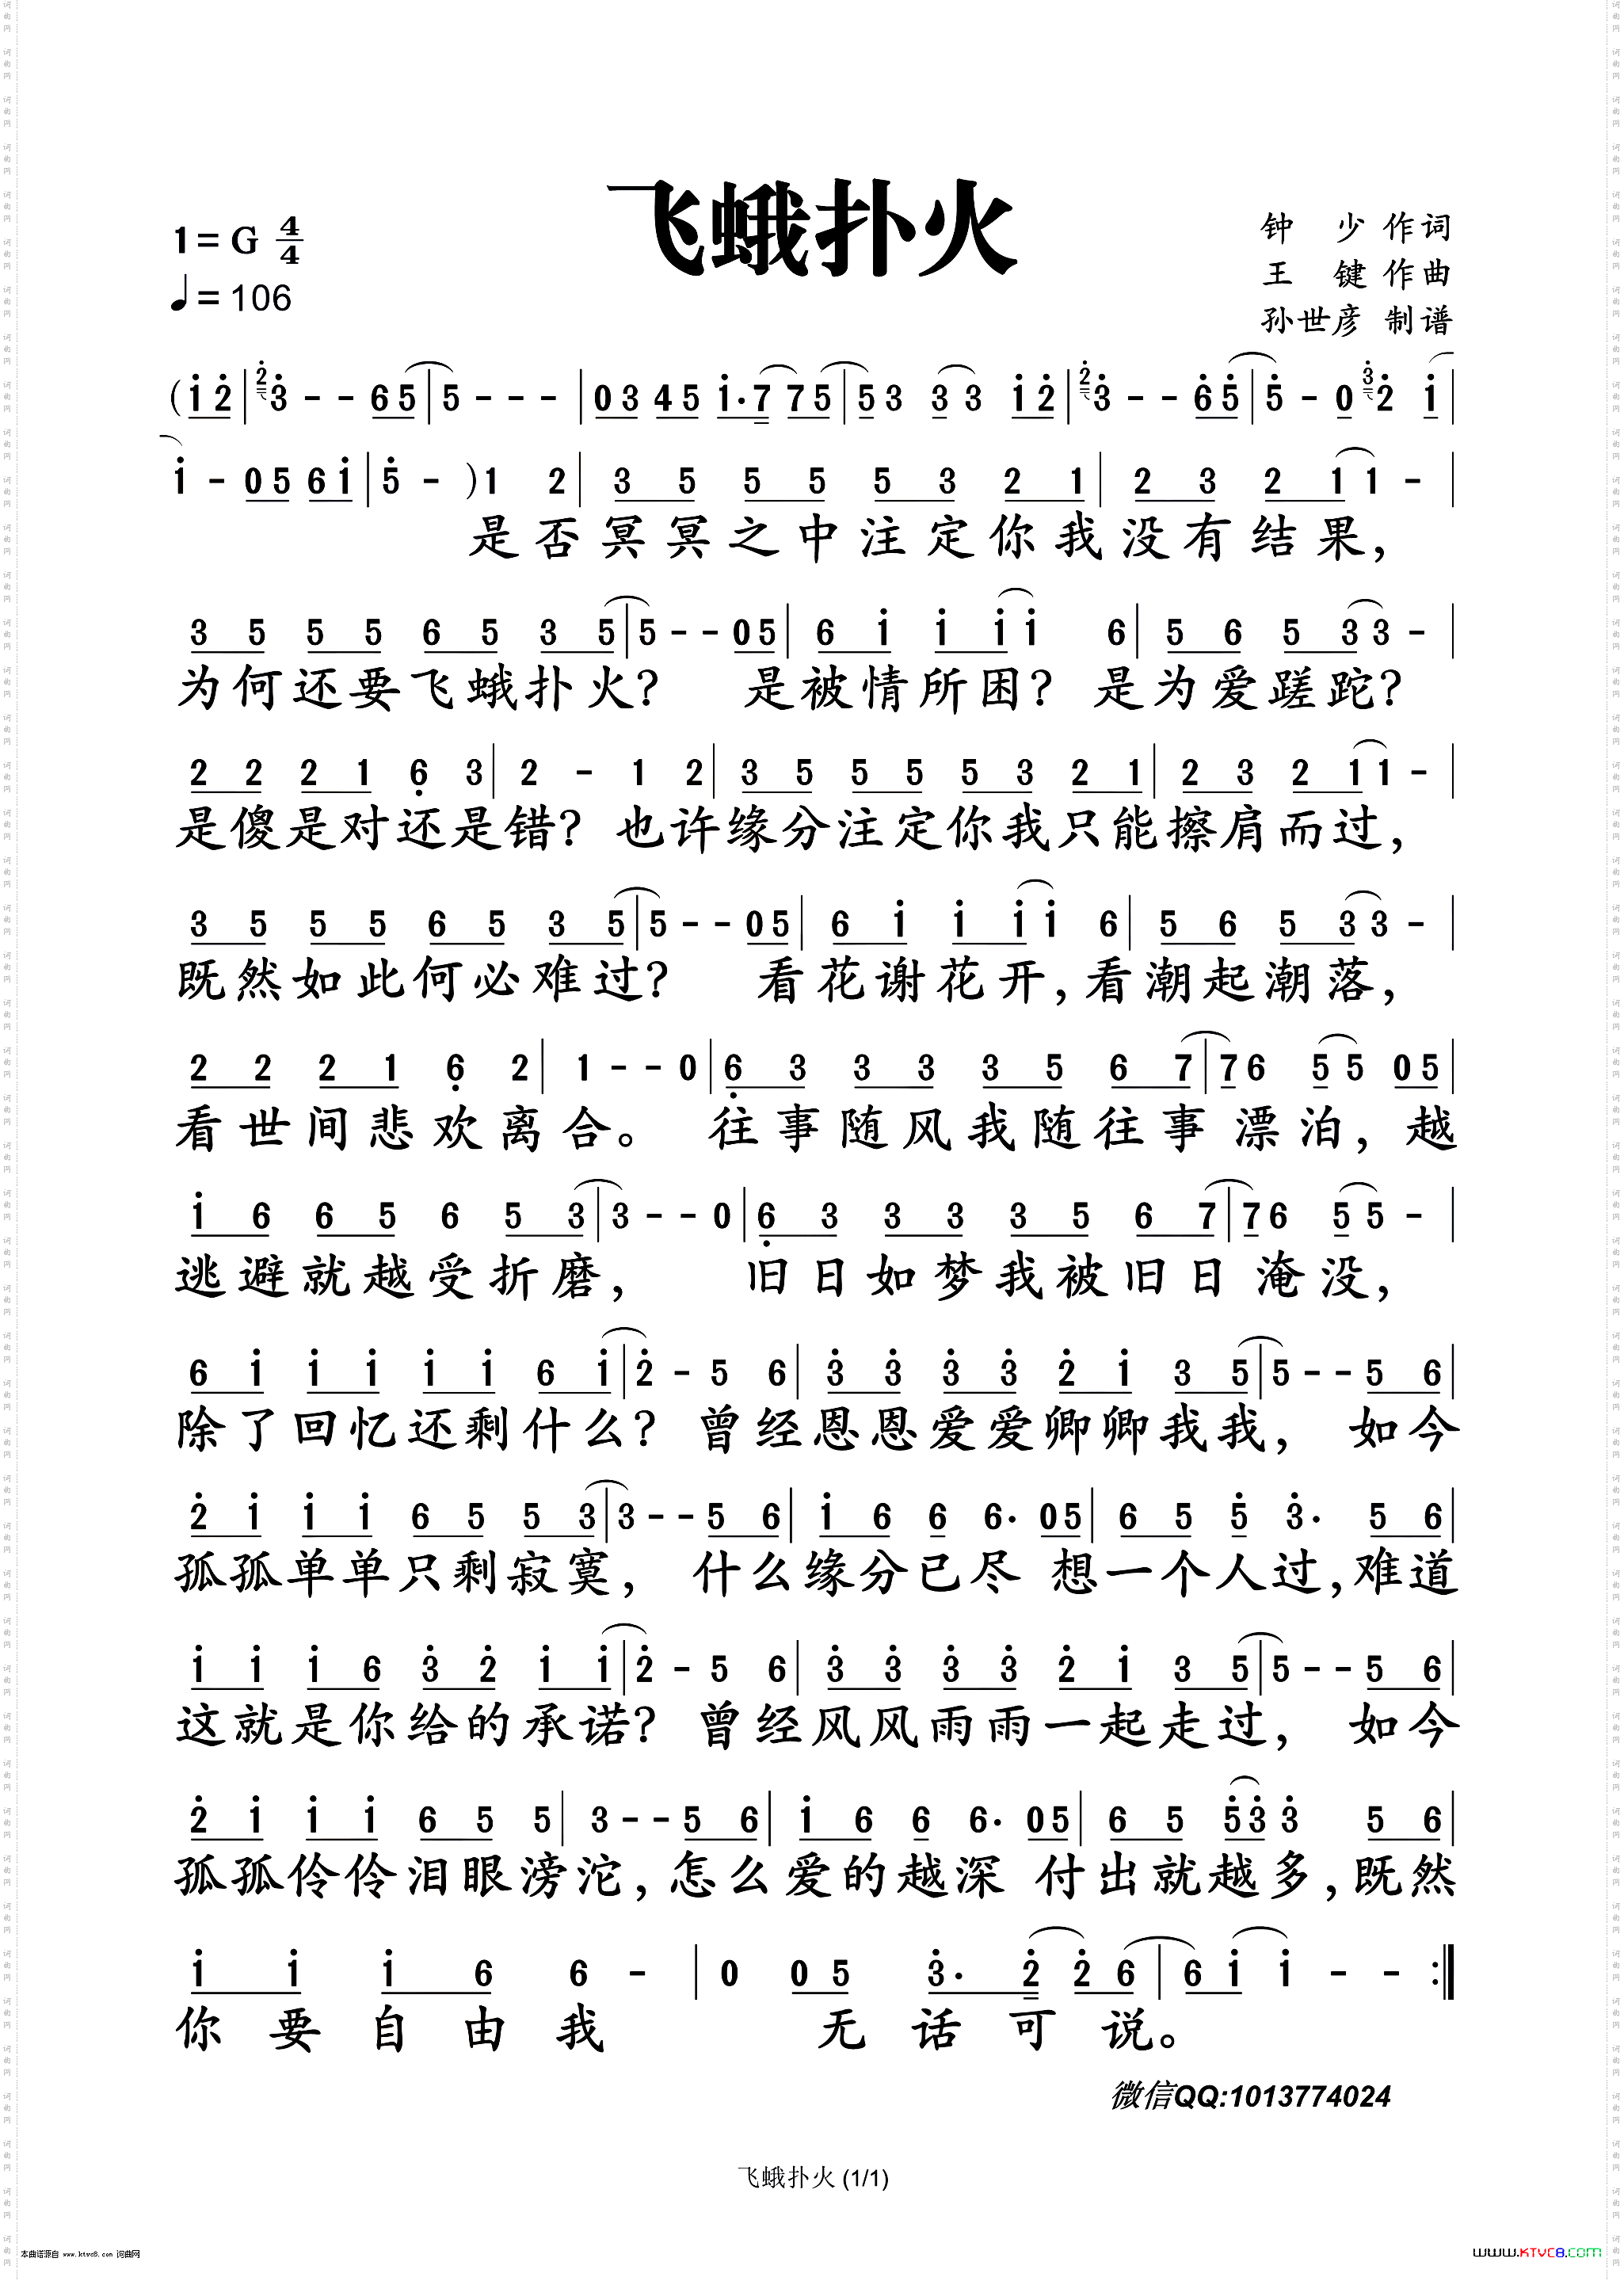 飞蛾扑火
1=G 4/4
♩=106
钟 少 作词
王 键 作曲
孙世彦 制谱
(i̇ 2̇ | 2̇ 3̇ - - 6 5 | 5 - - - | 0 3 4 5 i̇. 7 7 5 | 5 3 3 3 i̇ 2̇ | 2̇ 3̇ - - 6̇ 5̇ | 5̇ - 0 3̇ 2̇ i̇ |
i̇ - 0 5 6 i̇ | 5̇ - ) 1 2 | 3 5 5 5 5 3 2 1 | 2 3 2 1 1 - |
是否冥冥之中注定你我没有结果,
3 5 5 5 6 5 3 5 | 5 - - 0 5 | 6 i̇ i̇ i̇ i̇ 6 | 5 6 5 3 3 - |
为何还要飞蛾扑火? 是被情所困? 是为爱蹉跎?
2 2 2 1 6̣ 3 | 2 - 1 2 | 3 5 5 5 5 3 2 1 | 2 3 2 1 1 - |
是傻是对还是错? 也许缘分注定你我只能擦肩而过,
3 5 5 5 6 5 3 5 | 5 - - 0 5 | 6 i̇ i̇ i̇ i̇ 6 | 5 6 5 3 3 - |
既然如此何必难过? 看花谢花开,看潮起潮落,
2 2 2 1 6̣ 2 | 1 - - 0 | 6̣ 3 3 3 3 5 6 7 | 7 6 5 5 0 5 |
看世间悲欢离合。 往事随风我随往事漂泊, 越
i̇ 6 6 5 6 5 3 | 3 - - 0 | 6̣ 3 3 3 3 5 6 7 | 7 6 5 5 - |
逃避就越受折磨, 旧日如梦我被旧日淹没,
6 i̇ i̇ i̇ i̇ i̇ 6 i̇ | 2̇ - 5 6 | 3̇ 3̇ 3̇ 3̇ 2̇ i̇ 3 5 | 5 - - 5 6 |
除了回忆还剩什么? 曾经恩恩爱爱卿卿我我, 如今
2̇ i̇ i̇ i̇ 6 5 5 3 | 3 - - 5 6 | i̇ 6 6 6. 0 5 | 6 5 5̇ 3̇. 5 6 |
孤孤单单只剩寂寞, 什么缘分已尽 想一个人过,难道
i̇ i̇ i̇ 6 3̇ 2̇ i̇ i̇ | 2̇ - 5 6 | 3̇ 3̇ 3̇ 3̇ 2̇ i̇ 3 5 | 5 - - 5 6 |
这就是你给的承诺? 曾经风风雨雨一起走过, 如今
2̇ i̇ i̇ i̇ 6 5 5 | 3 - - 5 6 | i̇ 6 6 6. 0 5 | 6 5 5̇ 3̇ 3̇ 5 6 |
孤孤伶伶泪眼滂沱,怎么爱的越深 付出就越多,既然
i̇ i̇ i̇ 6 6 - | 0 0 5 3̇. 2̇ 2̇ 6 | 6 i̇ i̇ - - :|
你要自由我 无话可说。
微信QQ:1013774024
飞蛾扑火 (1/1)
本曲谱源自 www.ktvc8.com 词曲网
www.KTVC8.com